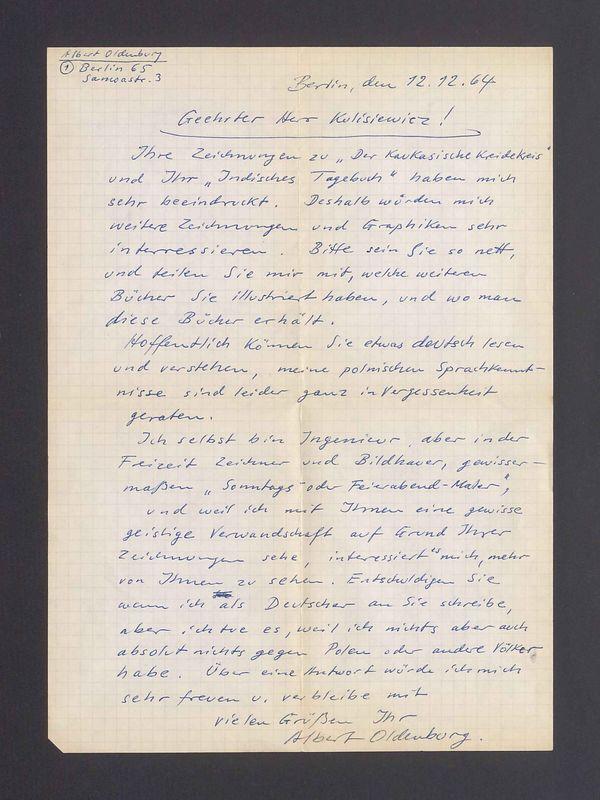 Albert Oldenburg
① Berlin 65
Samoastr. 3
Berlin, den 12.12.64
Geehrter Herr Kulisiewicz!
Ihre Zeichnungen zu „Der Kaukasische Kreidekreis"
und Ihr „Indisches Tagebuch" haben mich
sehr beeindruckt. Deshalb würden mich
weitere Zeichnungen und Graphiken sehr
interressieren. Bitte sein Sie so nett,
und teilen Sie mir mit, welche weiteren
Bücher Sie illustriert haben, und wo man
diese Bücher erhält.
Hoffentlich können Sie etwas deutsch lesen
und verstehen, meine polnischen Sprachkennt-
nisse sind leider ganz in Vergessenheit
geraten.
Ich selbst bin Ingenieur, aber in der
Freizeit Zeichner und Bildhauer, gewisser-
maßen „Sonntags- oder Feierabend-Maler",
und weil ich mit Ihnen eine gewisse
geistige Verwandschaft auf Grund Ihrer
Zeichnungen sehe, interessiert es mich, mehr
von Ihnen zu sehen. Entschuldigen Sie
wenn ich als Deutscher an Sie schreibe,
aber ich tue es, weil ich nichts aber auch
absolut nichts gegen Polen oder andere Völker
habe. Über eine Antwort würde ich mich
sehr freuen u. verbleibe mit
vielen Grüßen Ihr
Albert Oldenburg.